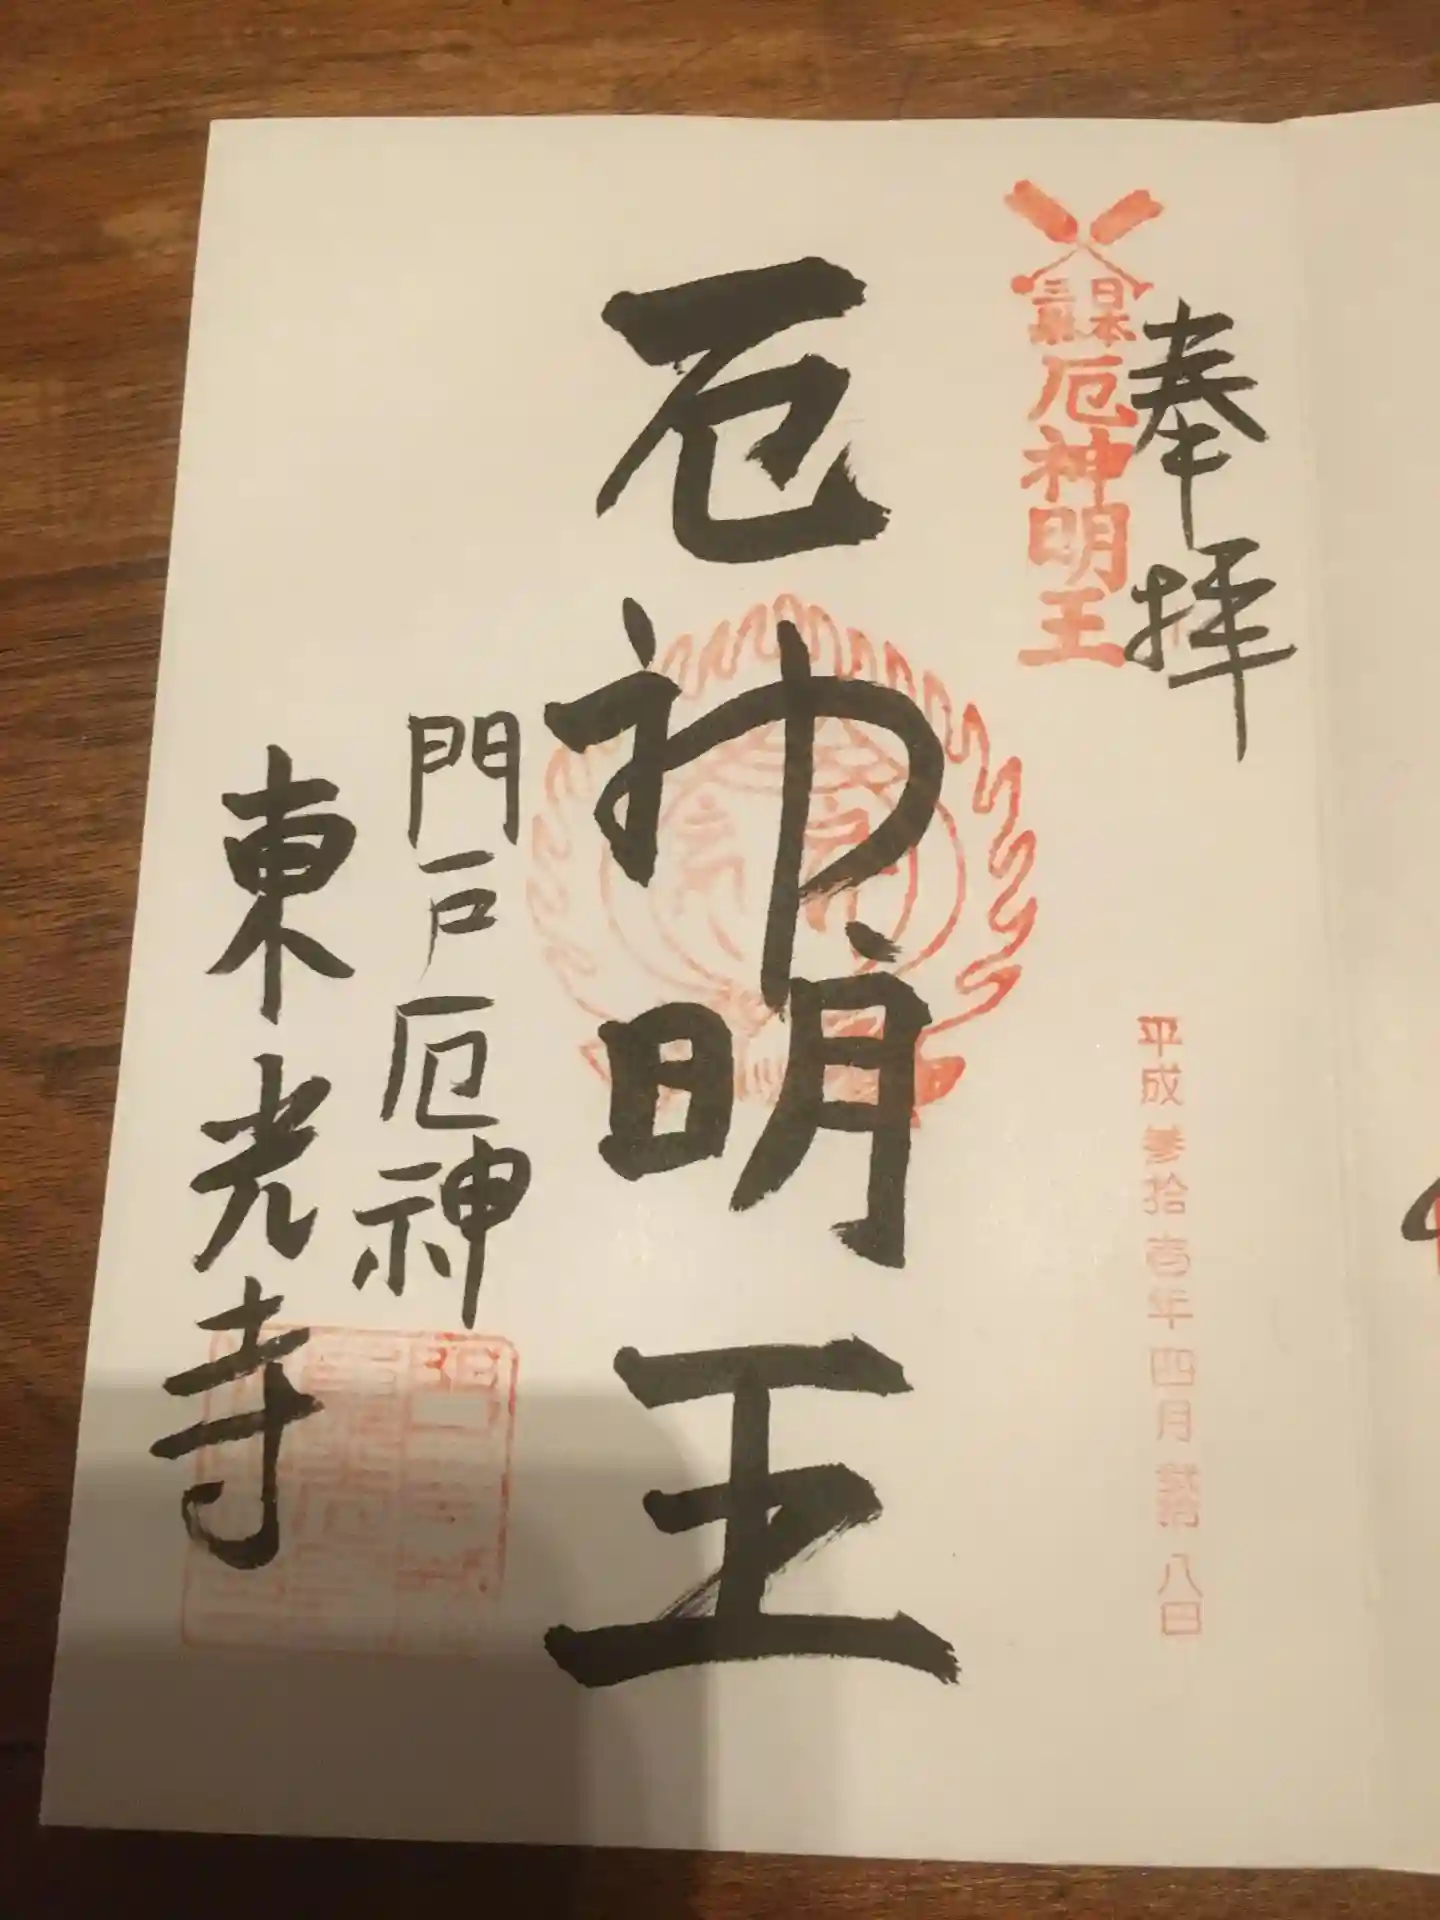 奉拝
日本
三躰
厄神明王
平成参拾壱年四月弐拾八日
厄神明王
門戸厄神
東光寺